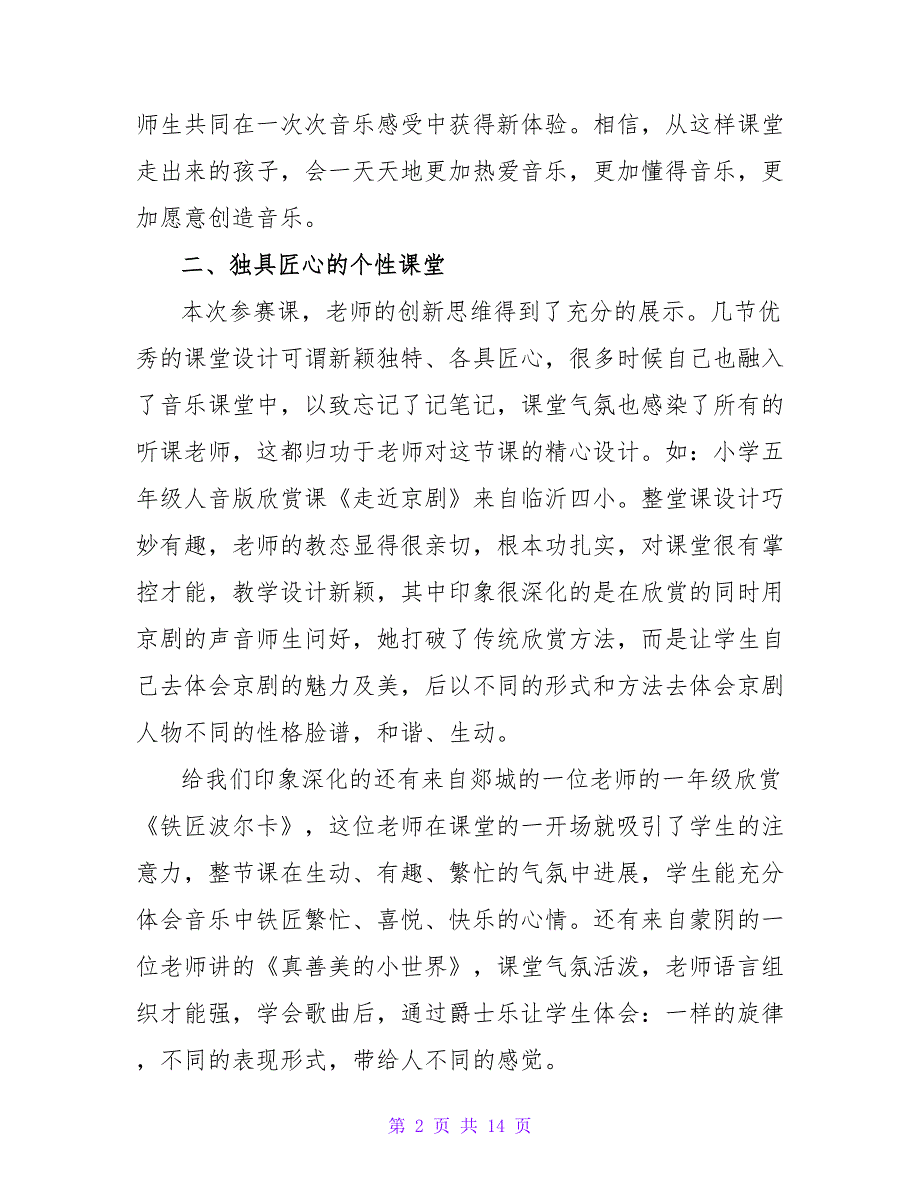 师生共同在一次次音乐感受中获得新体验。相信，从这样课堂
走出来的孩子，会一天天地更加热爱音乐，更加懂得音乐，更
加愿意创造音乐。
二、独具匠心的个性课堂
本次参赛课，老师的创新思维得到了充分的展示。几节优
秀的课堂设计可谓新颖独特、各具匠心，很多时候自己也融入
了音乐课堂中，以致忘记了记笔记，课堂气氛也感染了所有的
听课老师，这都归功于老师对这节课的精心设计。如：小学五
年级人音版欣赏课《走近京剧》来自临沂四小。整堂课设计巧
妙有趣，老师的教态显得很亲切，根本功扎实，对课堂很有掌
控才能，教学设计新颖，其中印象很深化的是在欣赏的同时用
京剧的声音师生问好，她打破了传统欣赏方法，而是让学生自
己去体会京剧的魅力及美，后以不同的形式和方法去体会京剧
人物不同的性格脸谱，和谐、生动。
给我们印象深化的还有来自郯城的一位老师的一年级欣赏
《铁匠波尔卡》，这位老师在课堂的一开场就吸引了学生的注
意力，整节课在生动、有趣、繁忙的气氛中进展，学生能充分
体会音乐中铁匠繁忙、喜悦、快乐的心情。还有来自蒙阴的一
位老师讲的《真善美的小世界》，课堂气氛活泼，老师语言组
织才能强，学会歌曲后，通过爵士乐让学生体会：一样的旋律
，不同的表现形式，带给人不同的感觉。
第 2 页 共 14 页